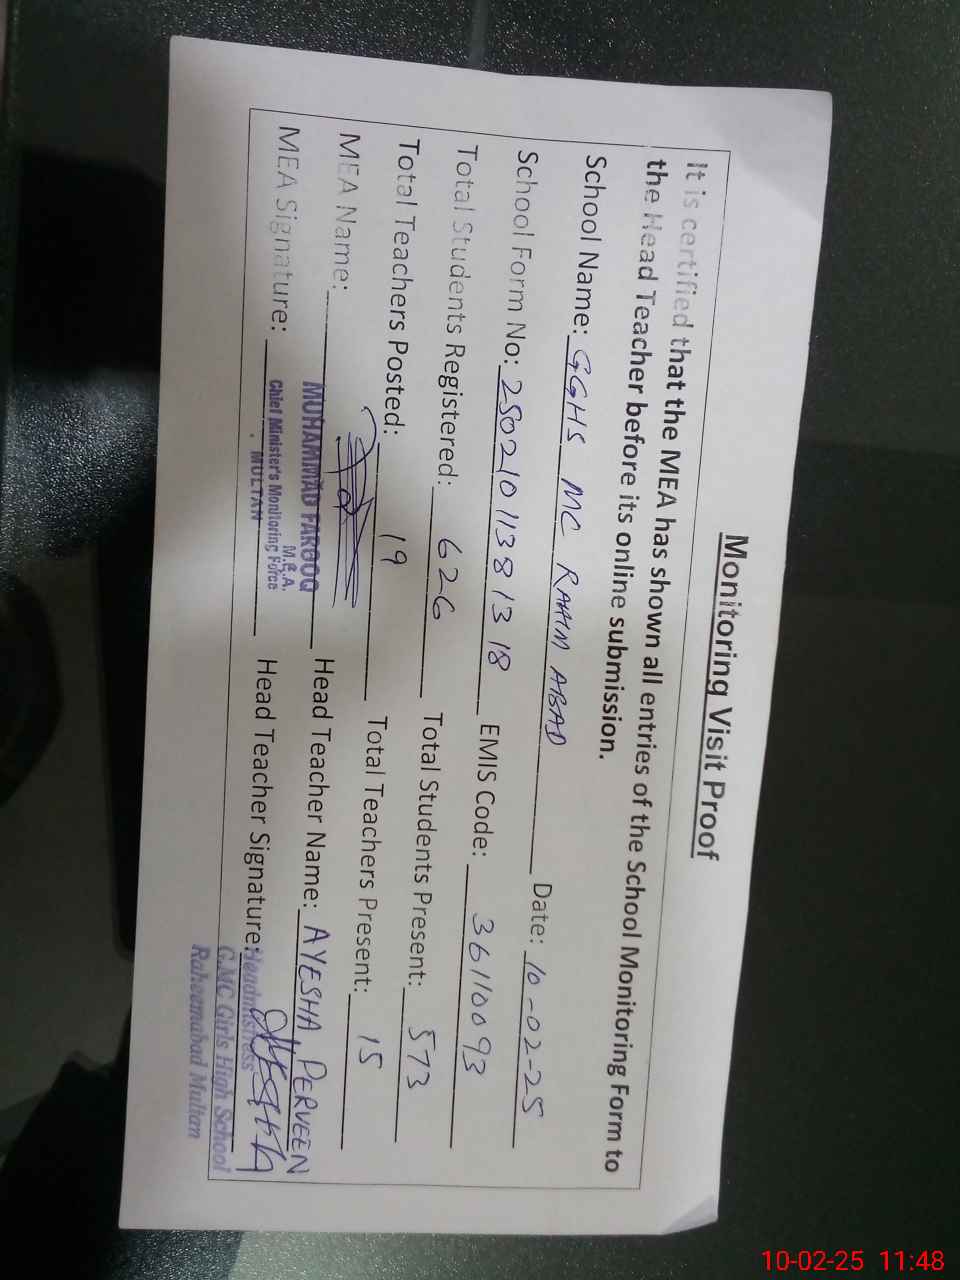 Monitoring Visit Proof
It is certified that the MEA has shown all entries of the School Monitoring Form to
the Head Teacher before its online submission.
School Name: GGHS MC RAHIM ABAD Date: 10-02-25
School Form No: 2502101138 13 18 EMIS Code: 36110093
Total Students Registered: 626 Total Students Present: 573
Total Teachers Posted: 19 Total Teachers Present: 15
MEA Name: MUHAMMAD FAROOQ Head Teacher Name: AYESHA PERVEEN
M.E.A.
MEA Signature: Chief Minister's Monitoring Force Head Teacher Signature:
MULTAN
Headmistress
G.MC Girls High School
Raheemabad Multan
10-02-25 11:48